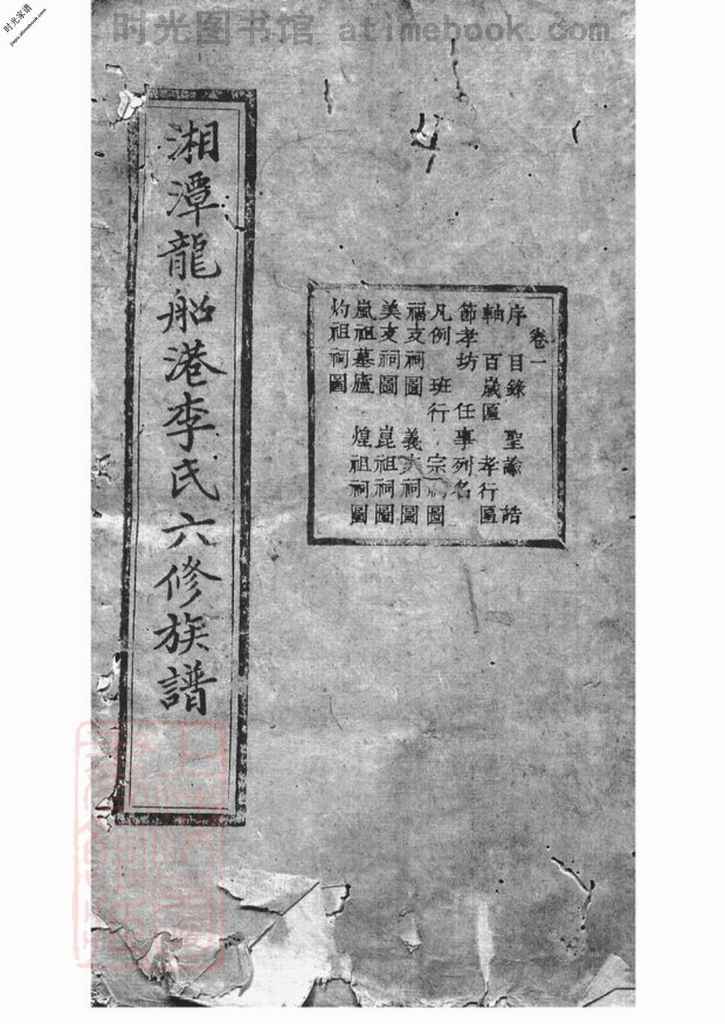 时光图书馆 atimebook.com
时光家谱
湘潭龍船港李氏六修族譜
卷一
序 目錄 聖諭 誥
軸 百歲匾 孝行匾
節孝坊 任事列名
凡例 班行 宗 圖
福支祠圖 義 祠圖
美支祠圖 崑祖祠圖
嵐祖墓廬 煌祖祠圖
灼祖祠圖